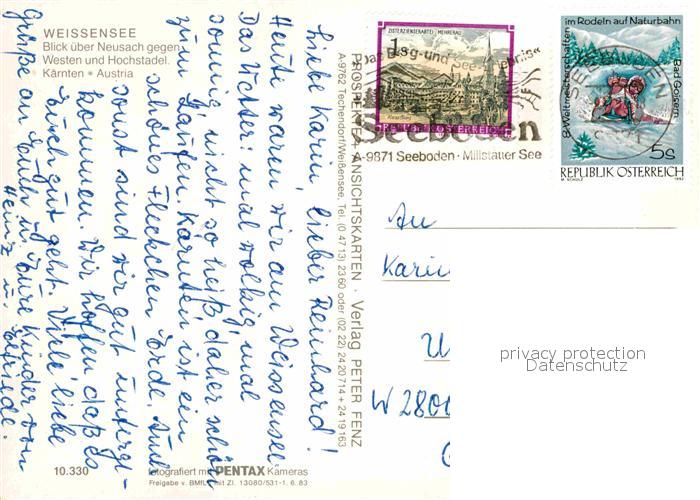 WEISSENSEE
Blick über Neusach gegen
Westen und Hochstadel.
Kärnten • Austria
Liebe Karin, lieber Reinhard!
Heute waren wir am Weissensee.
Das Wetter: mal wolkig, mal
sonnig, nicht so heiß, daher schön
zum Laufen. Kärnten ist ein
schönes Fleckchen Erde. Und
sonst sind wir gut unterge-
kommen. Wir hoffen, daß es
Euch gut geht. Viele liebe
Grüße an Euch u. Eure Kinder von
Heinz u. Elfriede.
10.330
fotografiert mit PENTAX Kameras
Freigabe v. BMfLV mit Zl. 13080/531-1. 6. 83
PROSPEKTE + ANSICHTSKARTEN · Verlag PETER FENZ
A-9762 Techendorf/Weißensee, Tel. (0 47 13) 23 60 oder (02 22) 24 20 714 + 24 19 163
ZISTERZIENSERABTEI · MEHRERAU
1
REPUBLIK ÖSTERREICH
Das Berg-und See-
Seeboden
A-9871 Seeboden · Millstätter See
8. Weltmeisterschaften
im Rodeln auf Naturbahn
Bad Goisern
5s
REPUBLIK ÖSTERREICH
1992
An
Karin
W 2801
privacy protection
Datenschutz